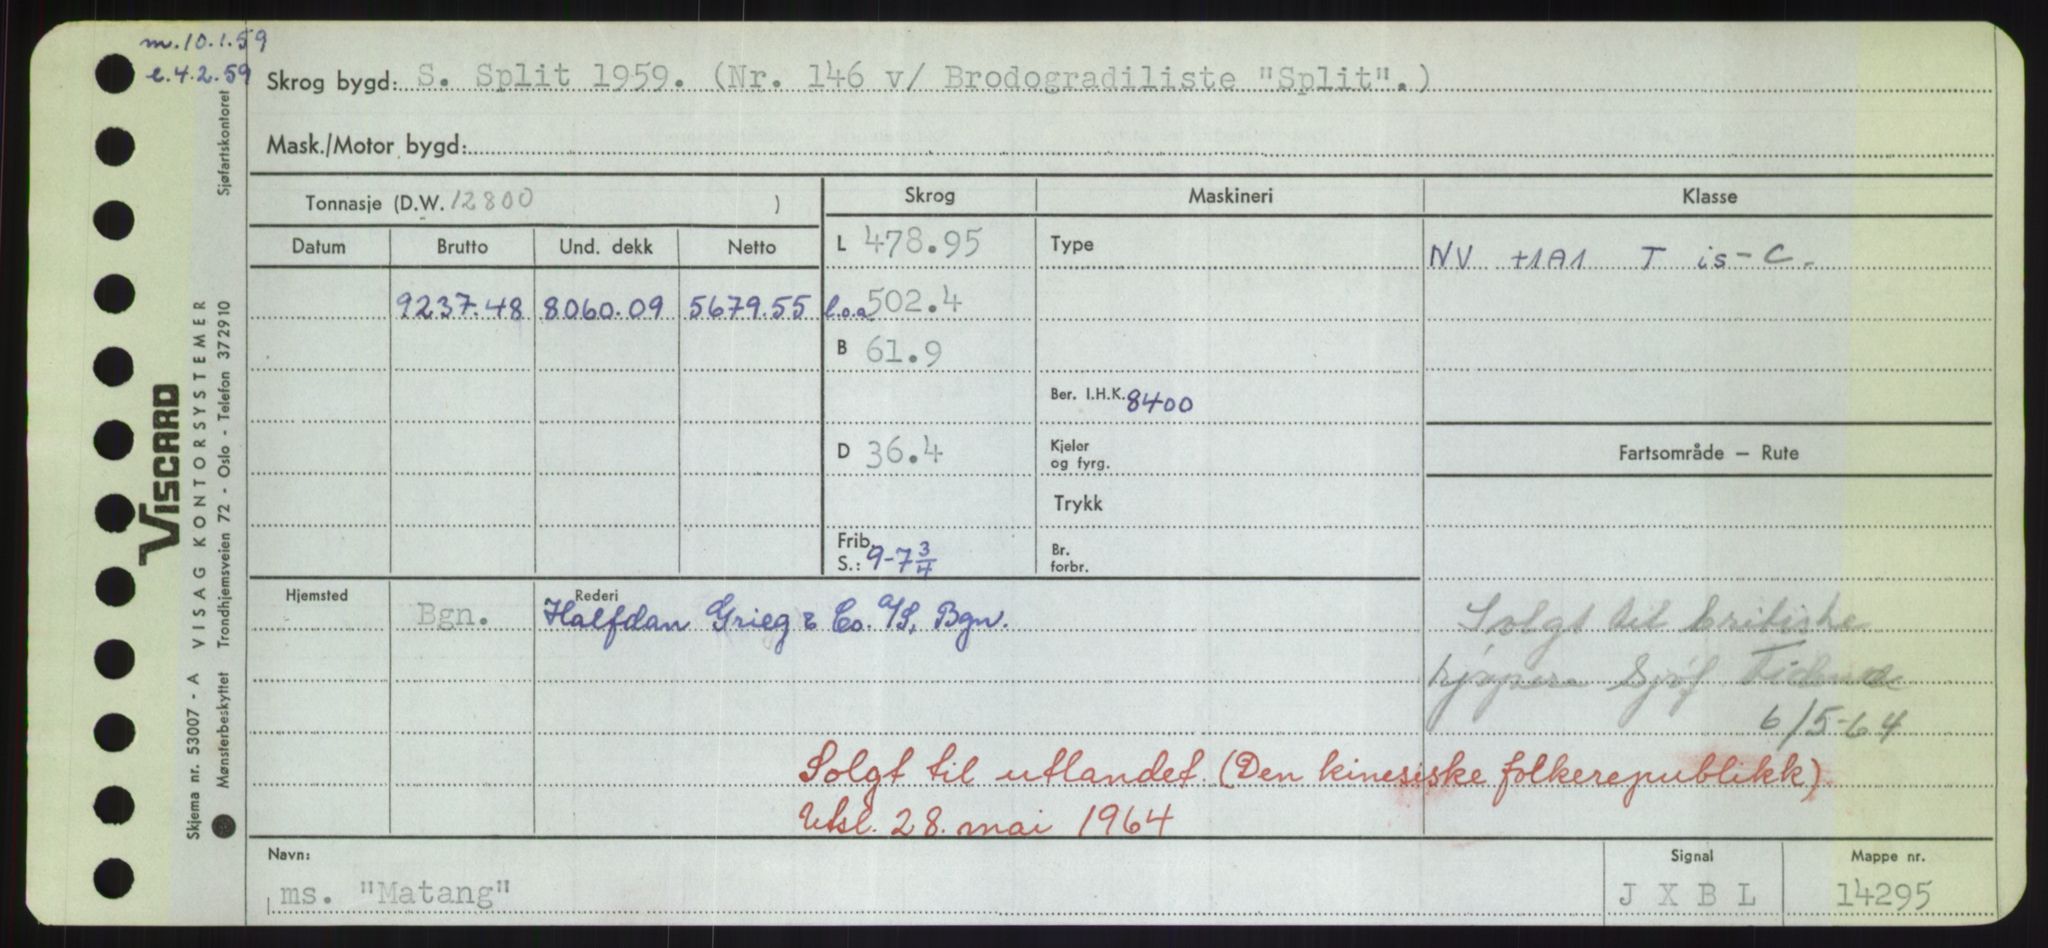 m.10.1.59
e.4.2.59
Skrog bygd: S. Split 1959. (Nr. 146 v/ Brodogradiliste "Split".)
Mask./Motor bygd:
Tonnasje (D.W. 12800 )
Skrog
Maskineri
Klasse
Datum Brutto Und. dekk Netto
L 478.95
Type
NV +1A1 T is-C.
9237.48 8060.09 5679.55 l.o.a 502.4
B 61.9
Ber. I.H.K. 8400
D 36.4
Kjeler
og fyrg.
Fartsområde — Rute
Trykk
Frib.
S.: 9-7 3/4
Br.
forbr.
Hjemsted Bgn.
Rederi
Halfdan Grieg & Co. A/S, Bgn.
Solgt til britiske
kjøpere Sjøf Tidende
6/5-64
Solgt til utlandet (Den kinesiske folkerepublikk).
Utsl. 28. mai 1964
Navn:
ms. "Matang"
Signal
J X B L
Mappe nr.
14295
VISCARD
Skjema nr. 53007 - A VISAG KONTORSYSTEMER
Mønsterbeskyttet Trondhjemsveien 72 - Oslo - Telefon 372910
Sjøfartskontoret